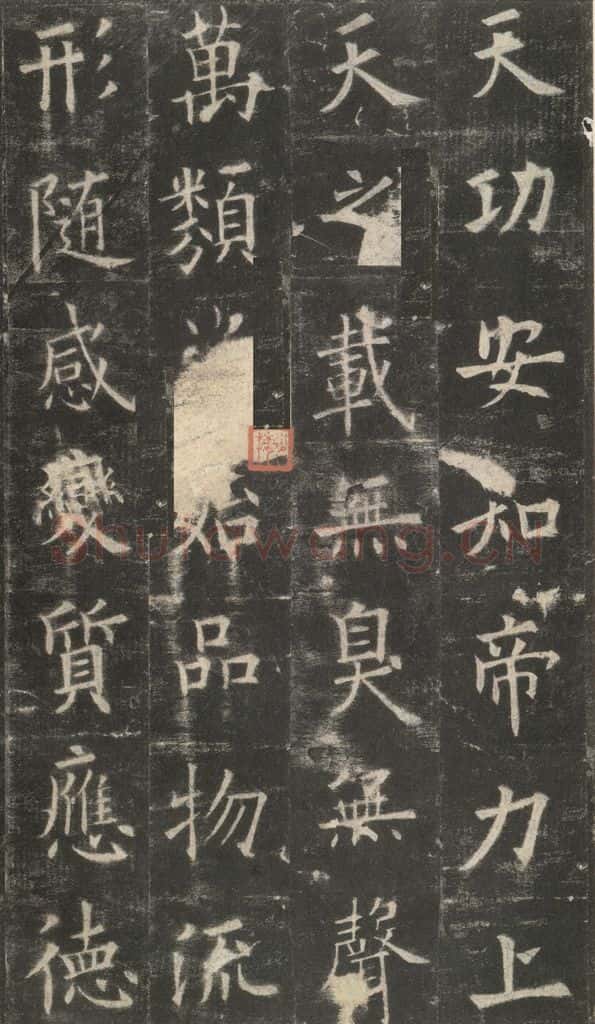 天功安知帝力上
天之載無臭無聲
萬類始品物流
形随感變質應徳
shufawang.CN